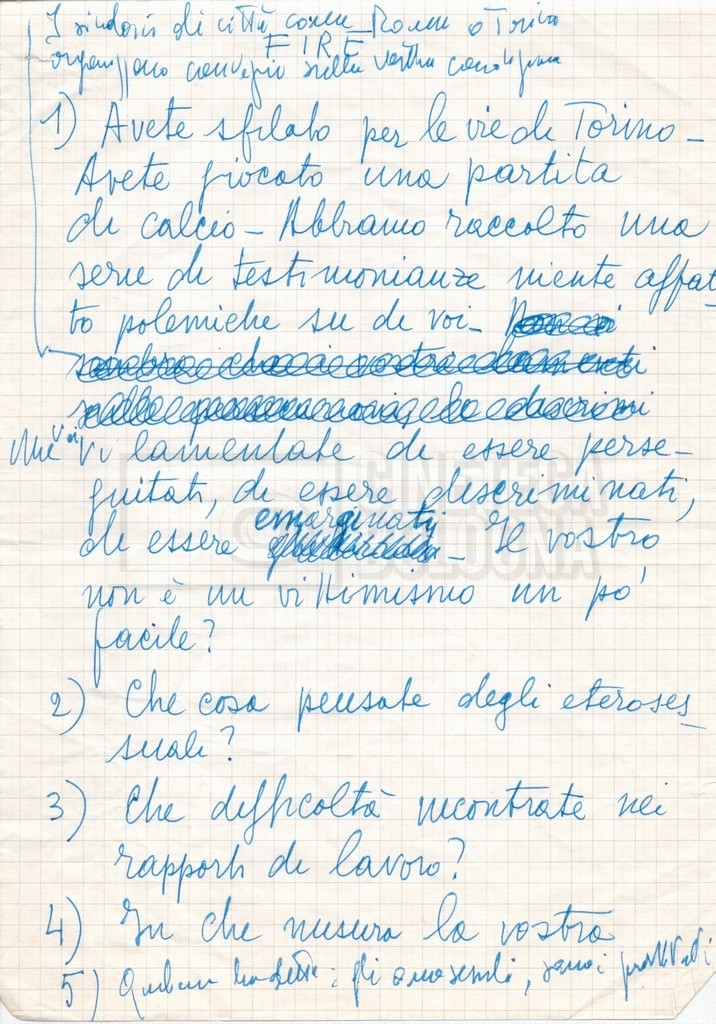 I sindaci di città come Roma o Torino
FIRE
organizzano convegni sulla vostra condizione
1) Avete sfilato per le vie di Torino -
Avete giocato una partita
di calcio - Abbiamo raccolto una
serie di testimonianze niente affat
to polemiche su di voi -
Ma voi vi lamentate di essere perse-
guitati, di essere discriminati,
di essere emarginati - Il vostro
non è un vittimismo un po'
facile?
2) Che cosa pensate degli eteroses_
suali?
3) Che difficoltà incontrate nei
rapporti di lavoro?
4) In che misura la vostra
5) Qualcuno ha detto: gli omosessuali, sono i
CINETECA
BOLOGNA